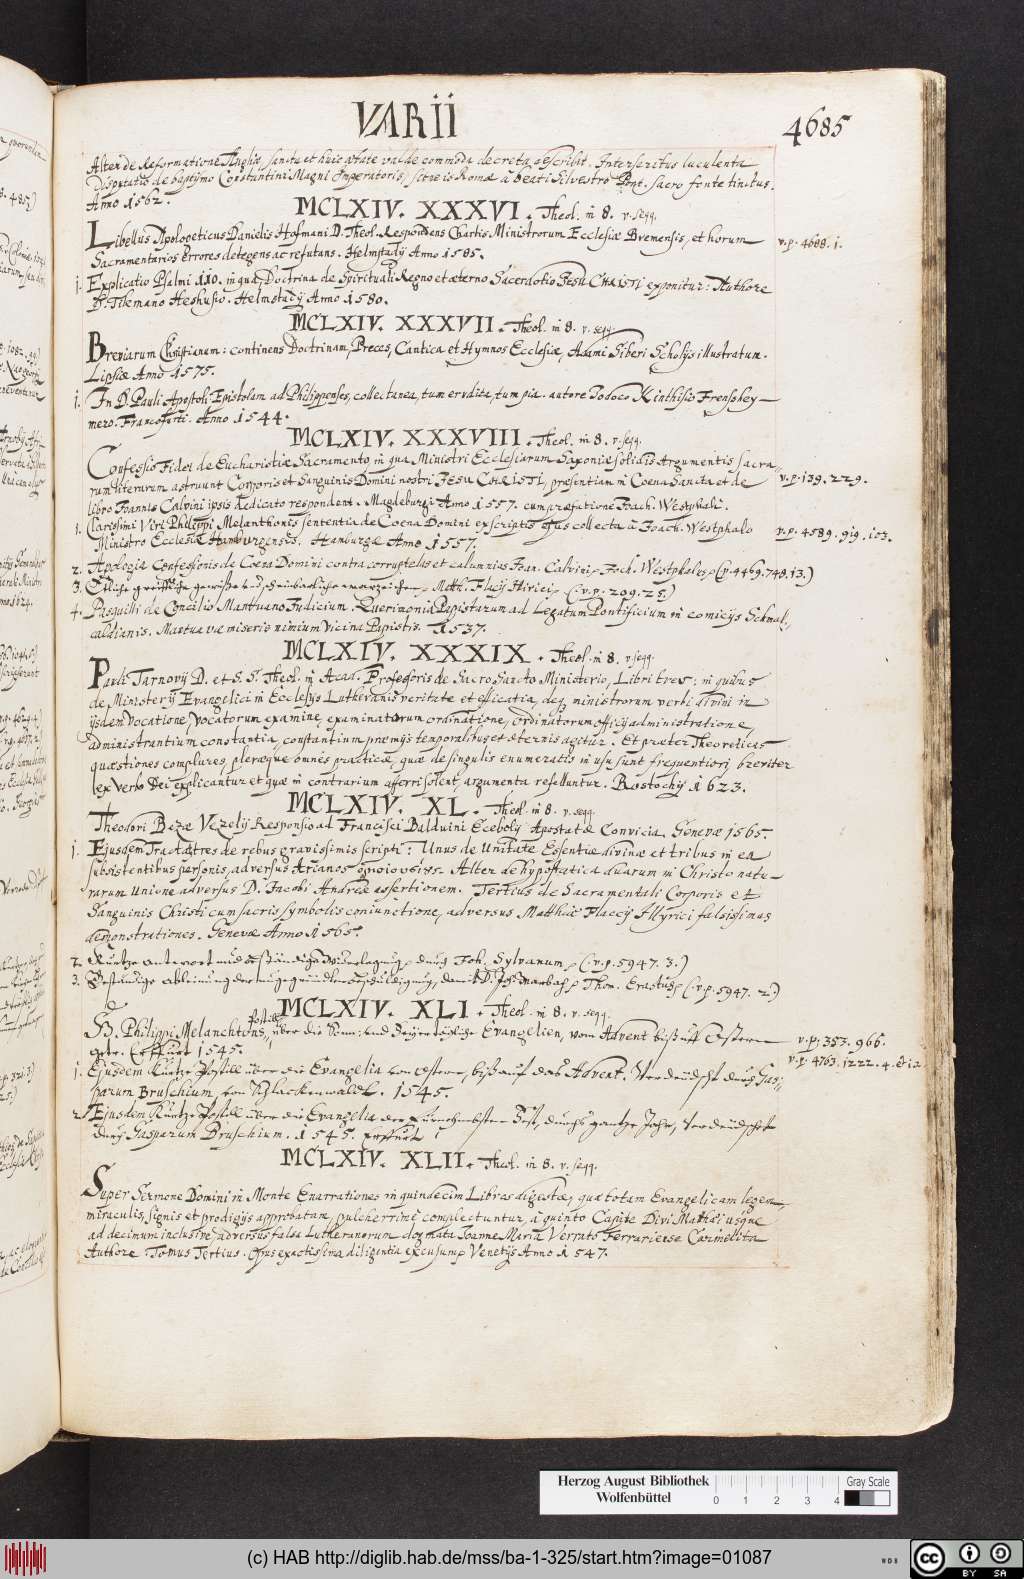 VARII
4685
Alter de Reformatione Angliæ, sancta et huic ætate valde commoda decreta describit. Interseritur luculenta
Disputatio de baptismo Constantini Magni Imperatoris, sitne is Romæ â beati Silvestro Pont. sacro fonte tinctus.
Anno 1562.
MCLXIV. XXXVI. Theol. in 8. v. seqq.
Libellus Apologeticus Danielis Hofmani D. Theol. Respondens Chartis Ministrorum Ecclesiæ Bremensis, et horum
v. p. 4688. 1.
Sacramentarios Errores detegens ac refutans. Helmstadij Anno 1585.
1. Explicatio Psalmi 110. in qua Doctrina de Spirituali Regno et æterno Sacerdotio JESU CHRISTI exponitur: Authore
D. Tilemano Heshusio. Helmstadij Anno 1580.
MCLXIV. XXXVII. Theol. in 8. v. seqq.
Breviarum Christianum: continens Doctrinam, Preces, Cantica et Hymnos Ecclesiæ, Adami Siberi Scholijs illustratum.
Lipsiæ Anno 1575.
1. In D. Pauli Apostoli Epistolam ad Philippenses, collectanea, tum erudita, tum pia. autore Jodoco Kinthisio Frenshey-
mero. Francofurti. Anno 1544.
MCLXIV. XXXVIII. Theol. in 8. v. seqq.
Confessio Fidei de Eucharistiæ Sacramento, in qua Ministri Ecclesiarum Saxoniæ solidis Argumentis sacra-
rum literarum astruunt Corporis et Sanguinis Domini nostri JESU CHRISTI, præsentiam in Coena Sancta et de
v. p. 139. 229.
libro Joannis Calvini ipsis dedicato respondent. Magdeburgi Anno 1557. cum præfatione Joach. Westphali.
1. Clarissimi Viri Philippi Melanthonis sententia de Coena Domini ex scriptis ejus collecta â Joach. Westphalo
v. p. 4589. 919. 103.
Ministro Ecclesiæ Hamburgensis. Hamburgæ Anno 1557.
2. Apologia Confessionis de Coena Domini contra corruptelas et calumnias Joan. Calvini, Joch. Westphalus, (v. p. 4469. 748. 13.)
3. Etliche Matth. Flacij Illirici, (v. p. 209. 25.)
4. Pasquilli de Concilio Mantuano Judicium. Querimonia Papistarum ad Legatum Pontificium in comicijs Schmal-
caldianis. Mantua væ miseris nimium vicina Papistis. 1537.
MCLXIV. XXXIX. Theol. in 8. v. seqq.
Pauli Tarnovij D. et S. S. Theol. in Acad. Professoris de Sacro Sancto Ministerio, Libri tres: in quibus
de Ministerij Evangelici in Ecclesijs Lutheranis veritate et efficatia, deq; ministrorum verbi divini in
ijsdem vocatione, vocatorum examine, examinatorum ordinatione, ordinatorum officij administratione,
administrantium constantia, constantium præmijs temporalibus et æternis agitur. Et præter Theoreticas
quæstiones complures, pleræque omnes practicæ, quæ de singulis enumeratis in usu sunt frequentiori, breviter
ex verbo Dei explicantur et quæ in contrarium afferri solent, argumenta refelluntur. Rostochij 1623.
MCLXIV. XL. Theol. in 8. v. seqq.
Theodori Bezæ Vezelij Responsio ad Francisci Balduini Ecebolij Apostatæ Convicia. Genevæ 1565.
1. Ejusdem Tractatus tres de rebus gravissimis scripti: Unus de Unitate Essentiæ divinæ et tribus in ea
subsistentibus personis, adversus Arianos . Alter de hypostatica duarum in Christo natu-
rarum Unione adversus D. Jacobi Andreæ assertionem. Tertius de Sacramentali Corporis et
Sanguinis Christi cum sacris symbolis coniunctione, adversus Matthiæ Flaccij Illyrici falsissimas
demonstrationes. Genevæ Anno 1565.
2. Kurtze antwort und beständige Widerlegung, durch Joh. Sylvanum, (v. p. 5947. 3.)
3. Beständige ableinung der ungegründten beschuldigung, damit D. Joh. Marbach, Thom. Erastus, (v. p. 5947. 2.)
MCLXIV. XLI. Theol. in 8. v. seqq.
H. Philippi Melanchtons, Postill über die Evangelien, vom Advent biß uff Ostern
v. p. 353. 966.
getr. Erffurt 1545.
1. Ejusdem Kurtze Postill über die Evangelia von Ostern, biß auf das Advent. Verdeüdscht durch Gas-
v. p. 4763. 1222. 4. et 12
parum Bruschium, von Schlackenwaldt. 1545.
2. Ejusdem Kurtze Postill über die Evangelia der fürnehmbsten Fest, durchs gantze Jahr, Verdeudscht
durch Gasparum Bruschium. 1545. Erffurt
MCLXIV. XLII. Theol. in 8. v. seqq.
Super Sermone Domini in Monte Enarrationes in quindecim Libros digestæ, quæ totam Evangelicam legem,
miraculis, signis et prodigijs approbatam, pulcherrimè complectuntur, â quinto Capite Divi Matthæi usque
ad decimum inclusivè, adversus falsa Lutheranorum dogmata Joanne Maria Verrato Ferrariense Carmelita
Authore. Tomus Tertius. Opus exactissima diligentia excusum, Venetijs Anno 1547.
Herzog August Bibliothek
Wolfenbüttel
0 1 2 3 4
Gray Scale
(c) HAB http://diglib.hab.de/mss/ba-1-325/start.htm?image=01087
WDB
cc BY SA